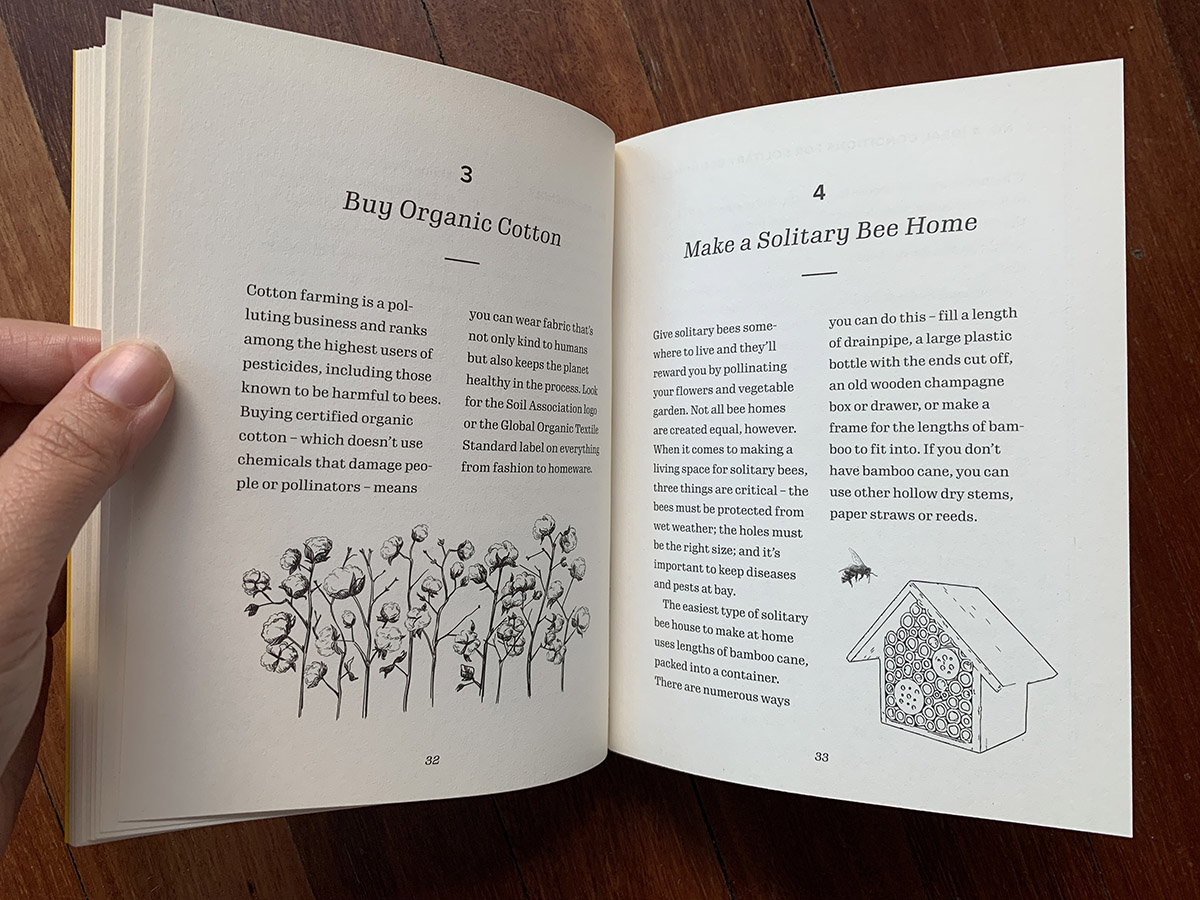 3
Buy Organic Cotton
Cotton farming is a pol-
luting business and ranks
among the highest users of
pesticides, including those
known to be harmful to bees.
Buying certified organic
cotton – which doesn't use
chemicals that damage peo-
ple or pollinators – means
you can wear fabric that's
not only kind to humans
but also keeps the planet
healthy in the process. Look
for the Soil Association logo
or the Global Organic Textile
Standard label on everything
from fashion to homeware.
32
4
Make a Solitary Bee Home
Give solitary bees some-
where to live and they'll
reward you by pollinating
your flowers and vegetable
garden. Not all bee homes
are created equal, however.
When it comes to making a
living space for solitary bees,
three things are critical – the
bees must be protected from
wet weather; the holes must
be the right size; and it's
important to keep diseases
and pests at bay.
The easiest type of solitary
bee house to make at home
uses lengths of bamboo cane,
packed into a container.
There are numerous ways
you can do this – fill a length
of drainpipe, a large plastic
bottle with the ends cut off,
an old wooden champagne
box or drawer, or make a
frame for the lengths of bam-
boo to fit into. If you don't
have bamboo cane, you can
use other hollow dry stems,
paper straws or reeds.
33